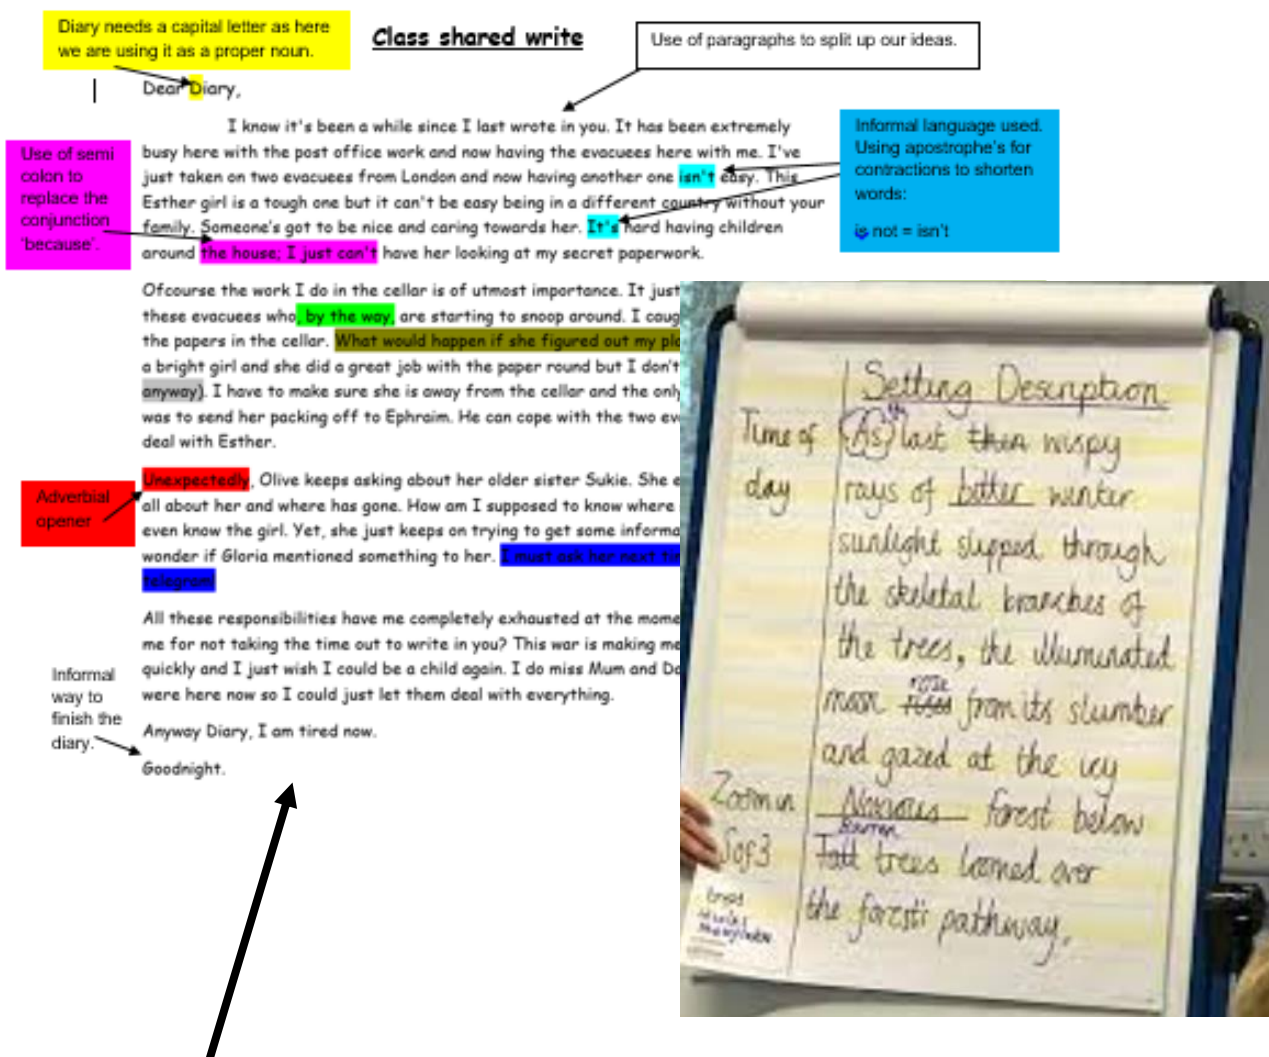 Diary needs a capital letter as here
we are using it as a proper noun.
Class shared write
Use of paragraphs to split up our ideas.
Dear Diary,
I know it's been a while since I last wrote in you. It has been extremely
busy here with the post office work and now having the evacuees here with me. I've
just taken on two evacuees from London and now having another one isn't easy. This
Esther girl is a tough one but it can't be easy being in a different country without your
family. Someone's got to be nice and caring towards her. It's hard having children
around the house; I just can't have her looking at my secret paperwork.
Use of semi
colon to
replace the
conjunction
'because'.
Informal language used.
Using apostrophe's for
contractions to shorten
words:
is not = isn't
Ofcourse the work I do in the cellar is of utmost importance. It just
these evacuees who, by the way, are starting to snoop around. I caug
the papers in the cellar. What would happen if she figured out my pla
a bright girl and she did a great job with the paper round but I don't
anyway). I have to make sure she is away from the cellar and the only
was to send her packing off to Ephraim. He can cope with the two eva
deal with Esther.
Adverbial
opener
Unexpectedly, Olive keeps asking about her older sister Sukie. She
all about her and where has gone. How am I supposed to know where
even know the girl. Yet, she just keeps on trying to get some informa
wonder if Gloria mentioned something to her. I must ask her next tim
telegram!
All these responsibilities have me completely exhausted at the mome
me for not taking the time out to write in you? This war is making me
quickly and I just wish I could be a child again. I do miss Mum and Da
were here now so I could just let them deal with everything.
Anyway Diary, I am tired now.
Goodnight.
Informal
way to
finish the
diary.
Setting Description
Time of
day
As the last thin wispy
rays of bitter winter
sunlight slipped through
the skeletal branches of
the trees, the illuminated
moon rose from its slumber
and gazed at the icy
Zoom in
5 of 3
Noxious forest below
Barren
Tall trees loomed over
the forest's pathway.